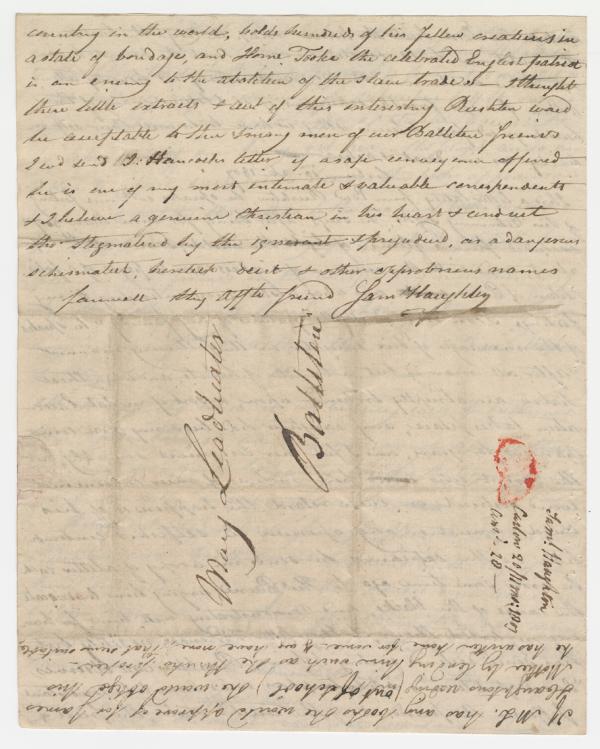 country in the world, holds hundreds of his fellow creatures in
a state of bondage, and Horne Tooke the celebrated English patriot
is an enemy to the abolition of the slave trade — I thought
these little extracts & acct of this interesting Rushton would
be acceptable to thee & many more of our Ballitore friends
I cod send J: Hancocks letter if a safe conveyance offered
he is one of my most intimate & valuable correspondents
& I believe a genuine Christian in his heart & conduct
tho' stigmatized by the ignorant & prejudiced, as a dangerous
schismatick, heretick deist & other opprobrious names
farewell thy affte friend Sam Haughton
Mary Leadbeater
Ballitore
Saml Haughton
Carlow 20/11mo: 1807
Ansd. 28 —
If M L. has any books she would approve of for James
Haughtons reading (out of school) she would oblige his
Mother by lending him such as she thinks proper.
he has written home for some & we have none, that seem suitable